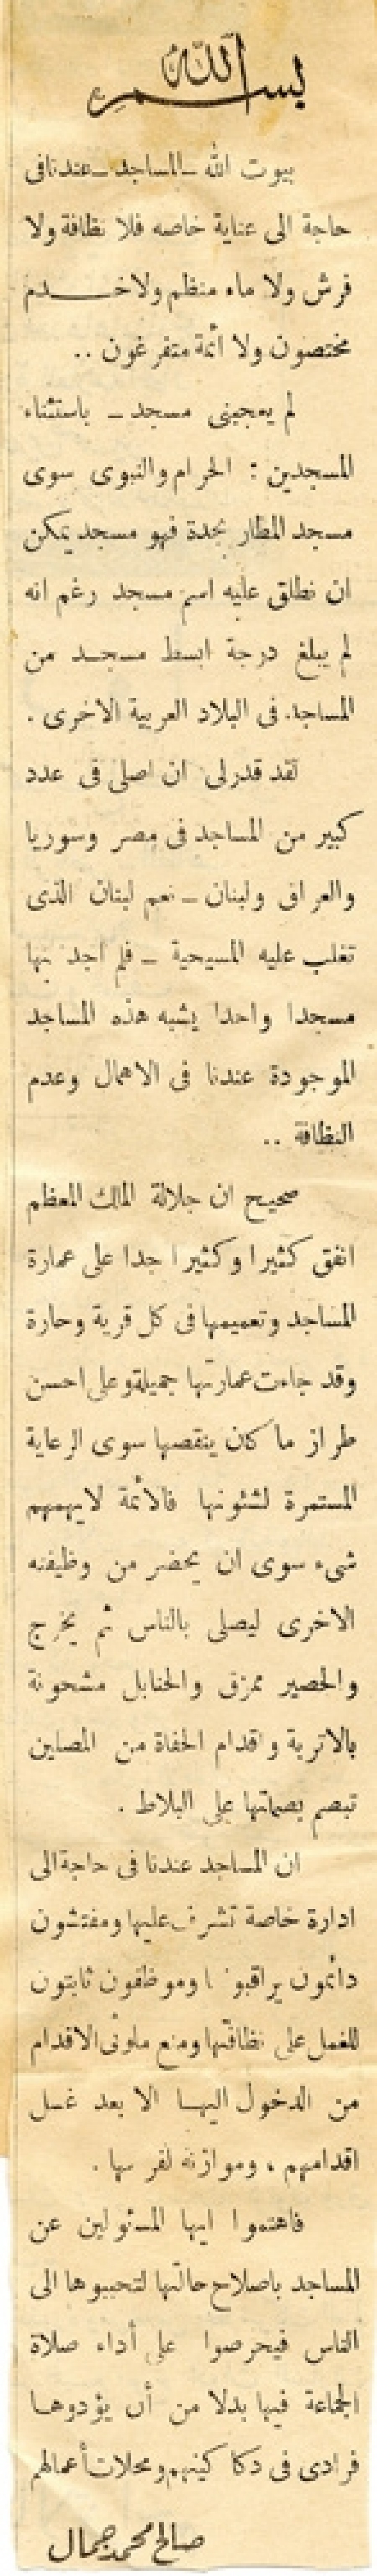 بسم الله
بيوت الله ـ المساجد ـ عندنا فى
حاجة الى عناية خاصه فلا نظافة ولا
فرش ولا ماء منظم ولا خـــدم
مختصون ولا أئمة متفرغون ..
لم يعجبنى مسجد ـ باستثناء
المسجدين : الحرام والنبوى سوى
مسجد المطار بجدة فهو مسجد يمكن
ان نطلق عليه اسم مسجد رغم انه
لم يبلغ درجة ابسط مسجد من
المساجد فى البلاد العربية الاخرى .
لقد قدرلى ان اصلى فى عدد
كبير من المساجد فى مصر وسوريا
والعراق ولبنان ـ نعم لبنان الذى
تغلب عليه المسيحية ـ فلم اجد بها
مسجدا واحدا يشبه هذه المساجد
الموجودة عندنا فى الاهمال وعدم
النظافة ..
صحيح ان جلالة الملك المعظم
انفق كثيرا وكثيرا جدا على عمارة
المساجد وتعميمها فى كل قرية وحارة
وقد جاءت عمارتها جميلة وعلى احسن
طراز ما كان ينقصها سوى الرعاية
المستمرة لشئونها فالأئمة لايهمهم
شىء سوى ان يحضر من وظيفته
الاخرى ليصلى بالناس ثم يخرج
والحصير ممزق والحنابل مشحونة
بالاتربة واقدام الحفاة من المصلين
تبصم بصماتها على البلاط .
ان المساجد عندنا فى حاجة الى
ادارة خاصة تشرف عليها ومفتشون
دائمون يراقبونها وموظفون ثابتون
للعمل على نظافتها ومنع ملوثى الاقدام
من الدخول اليها الا بعد غسل
اقدامهم ، وموازنة لفرشها .
فاهتموا ايها المسئولين عن
المساجد باصلاح حالتها لتحببوها الى
الناس فيحرصوا على أداء صلاة
الجماعة فيها بدلا من أن يؤدوهـا
فرادى فى دكاكينهم ومحلات أعمالهم
صالح محمد جمال